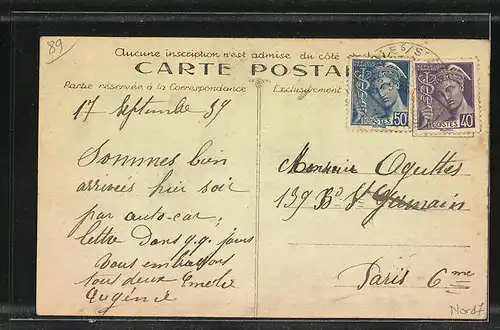 89
Aucune inscription n'est admise du côté
CARTE POSTA
Partie réservée à la Correspondance
Exclusivement
POSTES 50
POSTES 40
17 Septembre 39
Sommes bien
arrivées hier soir
par auto-car,
lettre dans q.q. jours
Vous embrassons
tous deux
Eugénie
Monsieur Oguttes
139 Bd St Germain
Paris 6me
Nord 7